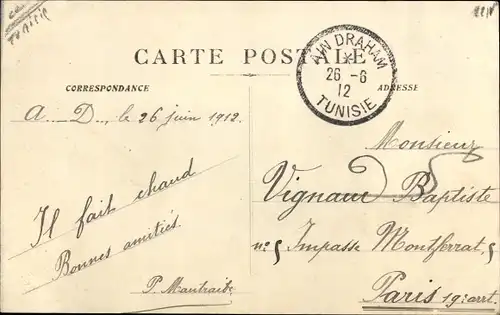 Tunisie
CARTE POSTALE
AIN DRAHAM
26 - 6
12
TUNISIE
CORRESPONDANCE
ADRESSE
A. D., le 26 juin 1912.
Il fait chaud
Bonnes amitiés
Monsieur
Vignaud Baptiste
n° 5 Impasse Montferrat, 5
Paris 19: arrt.